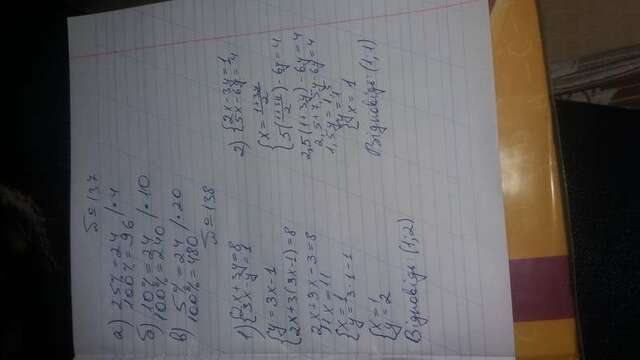 № 137
а) 25% = 24 /·4
100% = 96
б) 10% = 24 /·10
100% = 240
в) 5% = 24 /·20
100% = 480
№ 138
1) {2x+3y=8
3x-y=1
{y=3x-1
2x+3(3x-1)=8
2x+9x-3=8
11x=11
{x=1
y=3·1-1
{x=1
y=2
Відповідь: (1;2)
2) {2x-3y=1
5x-6y=4
{x=\frac{1+3y}{2}
5(\frac{1+3y}{2})-6y=4
2,5(1+3y)-6y=4
2,5+7,5y-6y=4
1,5y=1,5
{y=1
x=1
Відповідь: (1,1)